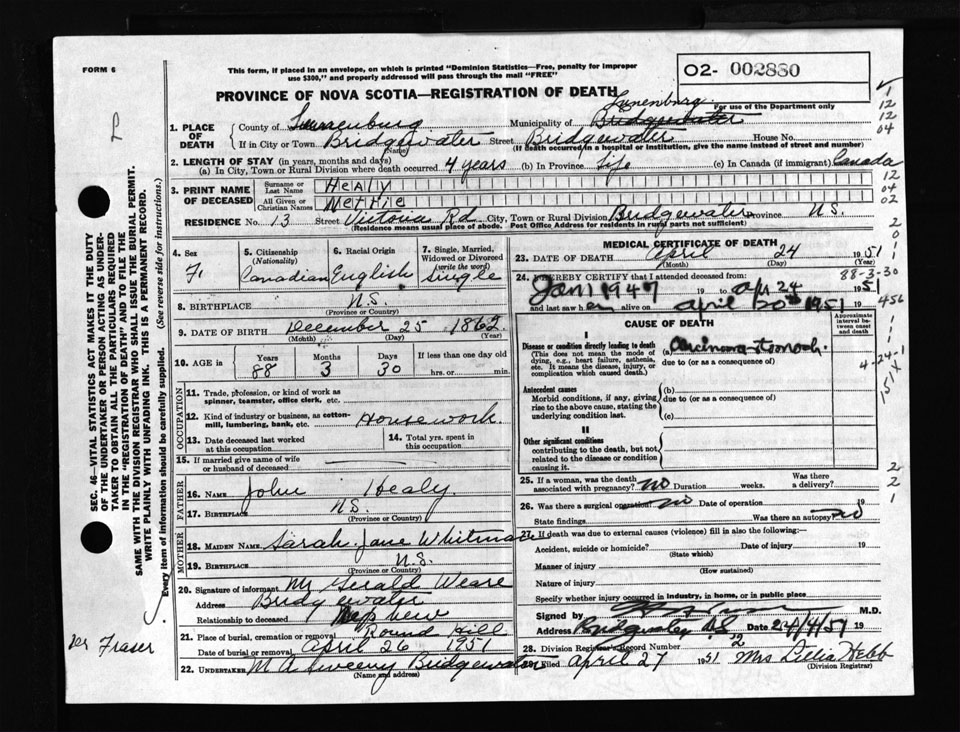 FORM 6
This form, if placed in an envelope, on which is printed "Dominion Statistics—Free, penalty for improper
use $300," and properly addressed will pass through the mail "FREE"
02- 002880
PROVINCE OF NOVA SCOTIA—REGISTRATION OF DEATH
For use of the Department only
Lunenburg
1. PLACE OF DEATH County of Lunenburg Municipality of Bridgewater
If in City or Town Bridgewater Street Bridgewater House No.
(Name) (If death occurred in a hospital or institution, give the name instead of street and number)
2. LENGTH OF STAY (in years, months and days)
(a) In City, Town or Rural Division where death occurred 4 years (b) In Province Life (c) In Canada (if immigrant) Canada
3. PRINT NAME OF DECEASED Surname or Last Name Healy
All Given or Christian Names Nettie
RESIDENCE No. 13 Street Victoria Rd. City, Town or Rural Division Bridgewater Province N.S.
(Residence means usual place of abode. Post Office Address for residents in rural parts not sufficient)
4. Sex F.
5. Citizenship (Nationality) Canadian
6. Racial Origin English
7. Single, Married, Widowed or Divorced (write the word) single
8. BIRTHPLACE N.S.
(Province or Country)
9. DATE OF BIRTH December 25 1862
(Month) (Day) (Year)
10. AGE in Years 88 Months 3 Days 30 If less than one day old hrs. or min.
OCCUPATION
11. Trade, profession, or kind of work as spinner, teamster, office clerk, etc.
12. Kind of industry or business, as cotton-mill, lumbering, bank, etc. Housework
13. Date deceased last worked at this occupation
14. Total yrs. spent in this occupation.
15. If married give name of wife or husband of deceased
FATHER
16. Name John Healy.
17. Birthplace N.S.
(Province or Country)
MOTHER
18. MAIDEN NAME Sarah Jane Whitman
19. BIRTHPLACE N.S.
(Province or Country)
20. Signature of informant Mr Gerald Weare
Address Bridgewater
Relationship to deceased Nephew
21. Place of burial, cremation or removal Round Hill
Date of burial or removal April 26 1951
22. UNDERTAKER M A Sweeny Bridgewater
(Name and address)
MEDICAL CERTIFICATE OF DEATH
23. DATE OF DEATH April 24 1951
(Month) (Day)
88-3-30
24. I HEREBY CERTIFY that I attended deceased from:
Jan 1 1947 to Apl 24 1951
and last saw her alive on April 20th 1951
CAUSE OF DEATH
Approximate interval between onset and death
I
Disease or condition directly leading to death (a) Carcinoma-stomach.
(This does not mean the mode of dying, e.g., heart failure, asthenia, etc. It means the disease, injury, or complication which caused death.)
due to (or as a consequence of)
Antecedent causes (b)
Morbid conditions, if any, giving rise to the above cause, stating the underlying condition last.
due to (or as a consequence of)
(c)
II
Other significant conditions contributing to the death, but not related to the disease or condition causing it.
25. If a woman, was the death associated with pregnancy? no Duration weeks. Was there a delivery?
26. Was there a surgical operation? no Date of operation 19
State findings Was there an autopsy? no
27. If death was due to external causes (violence) fill in also the following:
Accident, suicide or homicide? Date of injury 19
(State which)
Manner of injury
(How sustained)
Nature of injury
Specify whether injury occurred in industry, in home, or in public place
Signed by M.D.
Address Bridgewater N.S. Date 24/4/51 19
28. Division Registrar's Record Number 2
29. Filed April 27 1951 Mrs Lillia Hebb
(Division Registrar)
SEC. 46—VITAL STATISTICS ACT MAKES IT THE DUTY
OF THE UNDERTAKER OR PERSON ACTING AS UNDER-
TAKER TO OBTAIN ALL THE PARTICULARS REQUIRED
IN THE "REGISTRATION OF DEATH" AND TO FILE THE
SAME WITH THE DIVISION REGISTRAR WHO SHALL ISSUE THE BURIAL PERMIT.
WRITE PLAINLY WITH UNFADING INK. THIS IS A PERMANENT RECORD.
Every item of information should be carefully supplied. (See reverse side for instructions.)
Fraser
1
12
12
04
12
04
02
2
0
1
456
24-1
514
2
2
1